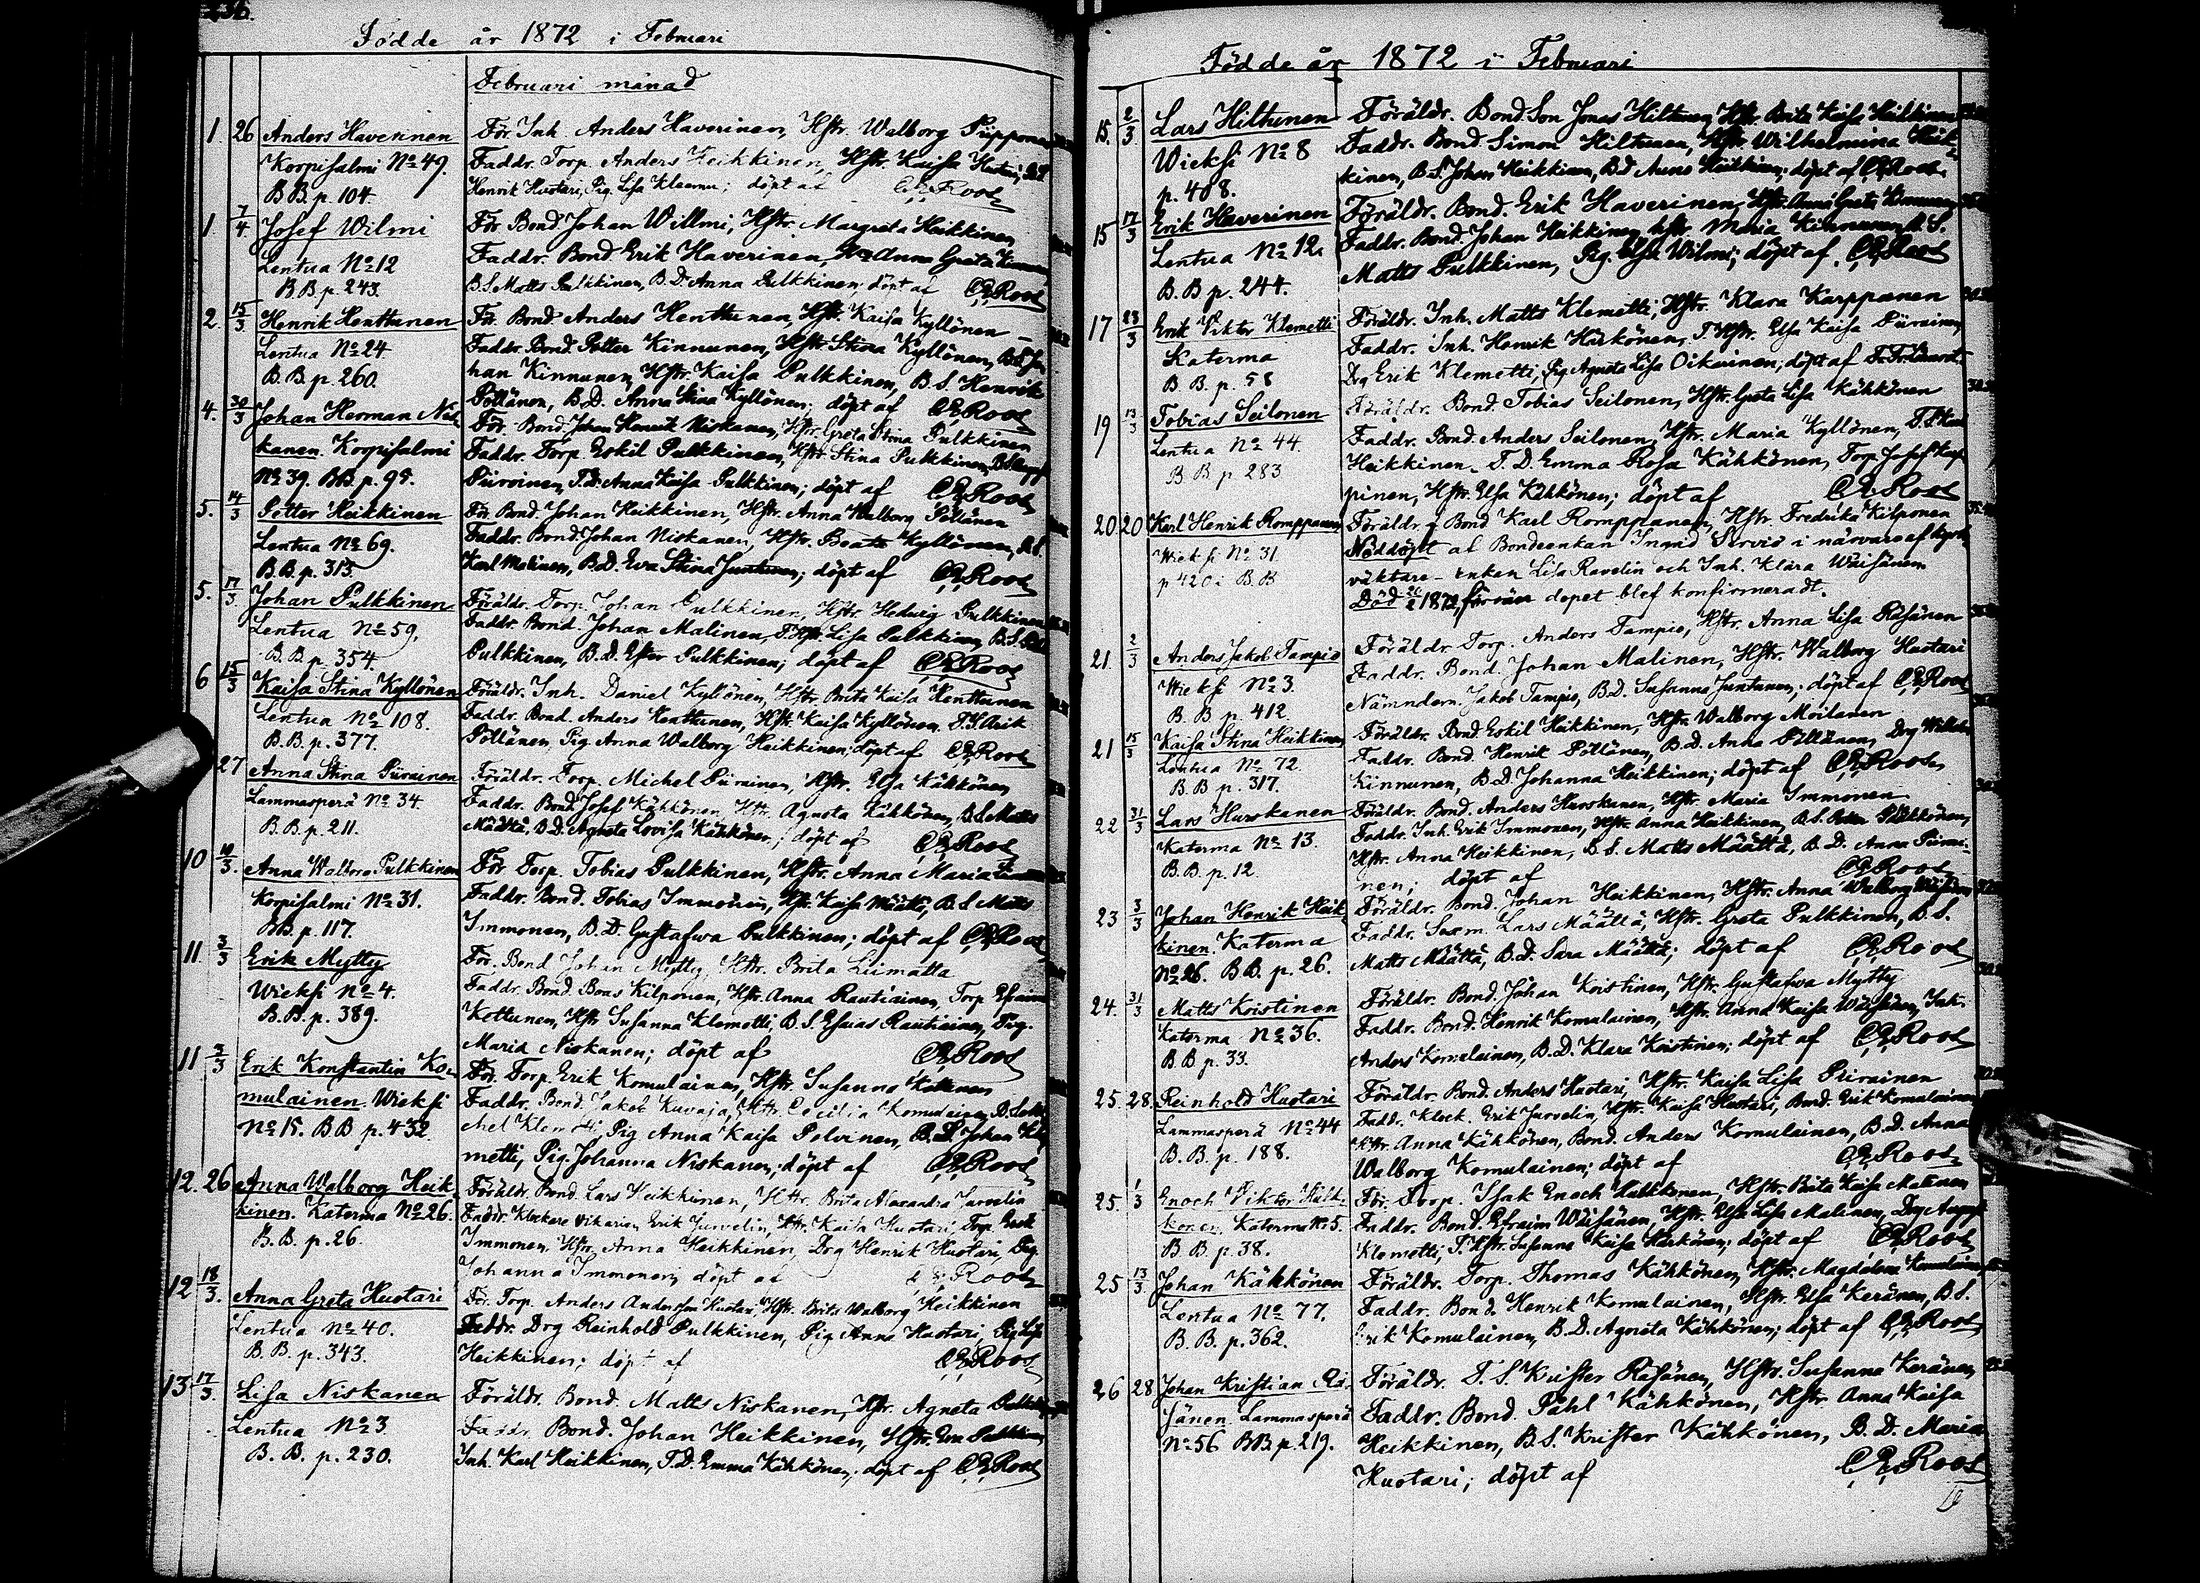 Födde år 1872 i Februari
Februari månad
1 26 Anders Haverinen För. Inh. Anders Haverinen, Hstr. Walborg Piipponen
Korpisalmi No 49. Faddr. Torp. Anders Heikkinen, Hstr. Kaisa Huotari,
B.B. p. 104. Henrik Huotari, Pig. Lisa Klemmu; döpt af CERoos
1 7/4 Josef Wilmi För. Bond. Johan Willmi, Hstr. Margreta Heikkinen
Lentua No 12 Faddr. Bond Erik Haverinen, Hstr Anna Greta Kinnunen
B.B. p. 243. B.S. Matts Pulkkinen, B.D. Anna Pulkkinen; döpt af CERoos
2. 15/3 Henrik Henttunen För. Bond. Anders Henttunen, Hstr. Kaisa Kyllönen
Lentua No 24 Faddr. Bond. Petter Kinnunen, Hstr. Stina Kyllönen, B.S. Jo-
B.B. p. 260. han Kinnunen, Hstr. Kaisa Pulkkinen, B.S. Henrik
Pöllänen, B.D. Anna Stina Kyllönen; döpt af CERoos
4. 30/3 Johan Herman Nis- För. Bond. Johan Henrik Niskanen, Hstr. Greta Stina Pulkkinen
kanen. Korpisalmi Faddr. Torp. Eskil Pulkkinen, Hstr. Stina Pulkkinen,
No 39. BB p. 95. Piiroinen, T.D. Anna Kaisa Pulkkinen; döpt af CERoos
5. 14/3 Petter Heikkinen För. Bond. Johan Heikkinen, Hstr. Anna Walborg Pöllänen
Lentua No 69. Faddr. Bond. Johan Niskanen, Hstr. Beata Kyllönen, B.S.
B.B. p. 313 Karl Molinen, B.D. Eva Stina Juntunen; döpt af CERoos
5. 17/3 Johan Pulkkinen Föräldr. Torp. Johan Pulkkinen, Hstr. Hedwig Pulkkinen
Lentua No 59. Faddr. Bond. Johan Malinen, T.Hstr. Lisa Pulkkinen, B.S.
B.B. p. 354. Pulkkinen, B.D. Ester Pulkkinen; döpt af CERoos
6 15/3 Kaisa Stina Kyllönen Föräldr. Inh. Daniel Kyllönen, Hstr. Brita Kaisa Henttunen
Lentua No 108. Faddr. Bond. Anders Henttunen, Hstr. Kaisa Kyllönen,
B.B. p. 377. Pöllänen, Pig Anna Walborg Heikkinen; döpt af CERoos
27 Anna Stina Piirainen Föräldr. Torp. Michel Piirainen, Hstr. Elsa Kähkönen
Lammasperä No 34. Faddr. Bond. Josef Kähkönen, Hstr. Agneta Kähkönen, B.S. Matts
B.B. p. 211. Määttä, B.D. Agneta Lovisa Kähkönen; döpt af CERoos
10 10/3. Anna Walborg Pulkkinen För. Torp. Tobias Pulkkinen, Hstr. Anna Maria
Korpisalmi No 31. Faddr. Bond. Tobias Immonen, Hstr. Kaisa Määttä, B.S. Matts
B.B. p. 117. Immonen, B.D. Gustafwa Pulkkinen; döpt af CERoos
11 3/3 Erik Mytty För. Bond Johan Mytty, Hstr. Brita Liimatta
Wieksi No 4. Faddr. Bond. Boas Kilponen, Hstr. Anna Rautiainen, Torp Efraim
B.B. p. 389. Kottunen, Hstr Susanna Klemetti, B.S. Esaias Rautiainen, Pig.
Maria Niskanen; döpt af CERoos
11 3/3 Erik Konstantin Ko- För. Torp. Erik Komulainen, Hstr. Susanna
mulainen. Wieksi Faddr. Bond. Jakob Kuvaja, Hstr. Cecilia Komulainen,
No 15. BB p. 432. chel Klemetti Pig Anna Kaisa Polvinen, B.S. Johan Kle-
metti, Pig. Johanna Niskanen; döpt af CERoos
12. 26 Anna Walborg Heik- Föräldr. Bond. Lars Heikkinen, Hstr. Brita Alexandra Jarvelin
kinen. Katerma No 26. Faddr. Klockare vikarien Erik Jarvelin, Hstr. Kaisa Huotari, Torp. Erik
B.B. p. 26. Immonen, Hstr. Anna Heikkinen, Drg Henrik Huotari, Pig.
Johanna Immonen; döpt af Roos
12 18/3. Anna Greta Huotari För. Torp. Anders Andersson Huotari, Hstr. Brita Walborg Heikkinen
Lentua No 40. Faddr. Drg Reinhold Pulkkinen, Pig Anna Huotari, Pig Lisa
B.B. p. 343. Heikkinen; döpt af CERoos
13 17/3. Lisa Niskanen Föräldr. Bond. Matts Niskanen, Hstr. Agneta
Lentua No 3 Faddr. Bond. Johan Heikkinen, Hstr. Eva Pulkkinen
B.B. p. 230. Inh. Karl Heikkinen, T.D. Emma Kähkönen; döpt af CERoos
Födde år 1872 i Februari
15. 2/3 Lars Hiltunen Föräldr. Bond.Son Jonas Hiltunen, Hstr. Brita Kaisa Heikkinen
Wieksi No 8 Faddr. Bond. Simon Hiltunen, Hstr. Wilhelmina Heik-
p. 408. kinen, B.S. Johan Heikkinen, B.D. Anna Heikkinen; döpt af CERoos
15 17/3 Erik Haverinen Föräldr. Bond. Erik Haverinen, Hstr. Anna Greta Kinnunen
Lentua No 12. Faddr. Bond. Johan Heikkinen, Hstr. Maria Kinnunen, B.S.
B.B p. 244. Matts Pulkkinen, Pig. Elsa Wilmi; döpt af CERoos
17 23/3 Erik Viktor Klemetti Föräldr. Inh. Matts Klemetti, Hstr. Klara Karppanen
Katerma Faddr. Inh. Henrik Härkönen, T.Hstr. Elsa Kaisa Piirainen
B.B. p. 58 Drg Erik Klemetti, Pig Agneta Lisa Oikarinen; döpt af
19 13/3 Tobias Seilonen Föräldr. Bond. Tobias Seilonen, Hstr. Greta Lisa Kähkönen
Lentua No 44. Faddr. Bond. Anders Seilonen, Hstr. Maria Kyllönen,
B.B p. 283 Heikkinen, T.D. Emma Rosa Kähkönen, Torp Josef Kar-
pinen, Hstr. Elsa Kähkönen; döpt af CERoos
20 20 Karl Henrik Romppanen Föräldr. Bond Karl Romppanen, Hstr. Fredrika Kilponen
Wieksi No 31 Nöddöpt af Bondeenkan Ingrid Servio i närvaro af kyrk-
p 420 i B.B väktare-enkan Lisa Ravelin och Inh. Klara Wäisänen
Död 20/2 1872, förrän dopet blef konfirmeradt.
21. 2/3 Anders Jakob Tampio Föräldr. Torp. Anders Tampio, Hstr. Anna Lisa Räsänen
Wieksi No 3. Faddr. Bond. Johan Malinen, Hstr. Walborg Huotari
B.B. p. 412. Nämndem. Jakob Tampio, B.D. Susanna Juntunen; döpt af CERoos
21 15/3 Kaisa Stina Heikkinen Föräldr. Bond Eskil Heikkinen, Hstr. Walborg Moilanen
Lentua No 72. Faddr. Bond. Henrik Pöllänen, B.D. Anna Pöllänen, Drg Wilhelm
B.B. p. 317. Kinnunen, B.D. Johanna Heikkinen; döpt af CERoos
22 31/3 Lars Hurskanen Föräldr. Bond. Anders Hurskanen, Hstr. Maria Immonen
Katerma No 13. Faddr. Inh. Erik Immonen, Hstr. Anna Heikkinen, B.S. Petter
B.B. p. 12. Hstr. Anna Heikkinen, B.S. Matts Määttä, B.D. Anna Piirai-
nen; döpt af CERoos
23 3/3 Johan Henrik Heik- Föräldr. Bond. Johan Heikkinen, Hstr. Anna Walborg Wäisänen
kinen. Katerma Faddr. Lars Määttä, Hstr. Greta Pulkkinen, B.S.
No 26. B.B. p. 26. Matts Määttä, B.D. Sara Määttä; döpt af CERoos
24. 31/3 Matts Kristinen Föräldr. Bond. Johan Koistinen, Hstr. Gustafwa Mytty
Katerma No 36. Faddr. Bond. Henrik Komulainen, Hstr. Anna Kaisa Wäisänen, Inh.
B.B p. 33. Anders Komulainen, B.D. Klara Koistinen; döpt af CERoos
25. 28. Reinhold Huotari Föräldr. Bond. Anders Huotari, Hstr. Kaisa Lisa Piirainen
Lammasperä No 44 Fadd. Klock. Erik Jarvelin, Hstr. Kaisa Huotari, Bond. Erik Komulainen
B.B. p. 188. Hstr. Anna Kähkönen, Bond. Anders Komulainen, B.D. Anna
Walborg Komulainen; döpt af CERoos
25. 1/3 Enoch Viktor Hulk- För. Torp. Isak Enoch Hulkkonen, Hstr. Brita Kaisa Malinen
konen. Katerma No 5. Faddr. Bond. Efraim Wäisänen, Hstr. Elsa Lisa Malinen, Drg August
B.B p. 38. Klemetti, T.Hstr. Susanna Kaisa Härkönen; döpt af CERoos
25 13/3. Johan Kähkönen Föräldr. Torp. Thomas Kähkönen, Hstr. Magdalena Komulainen
Lentua No 77. Faddr. Bond. Henrik Komulainen, Hstr. Elsa Keränen, B.S.
B.B. p. 362. Erik Komulainen, B.D. Agneta Kähkönen; döpt af CERoos
26 28 Johan Kristian Rä- Föräldr. T.S. Krister Räsänen, Hstr. Susanna Keränen
sänen. Lammasperä Faddr. Bond. Påhl Kähkönen, Hstr. Anna Kaisa
No 56 BB p. 219. Heikkinen, B.S. Krister Kähkönen, B.D. Maria
Huotari; döpt af CERoos